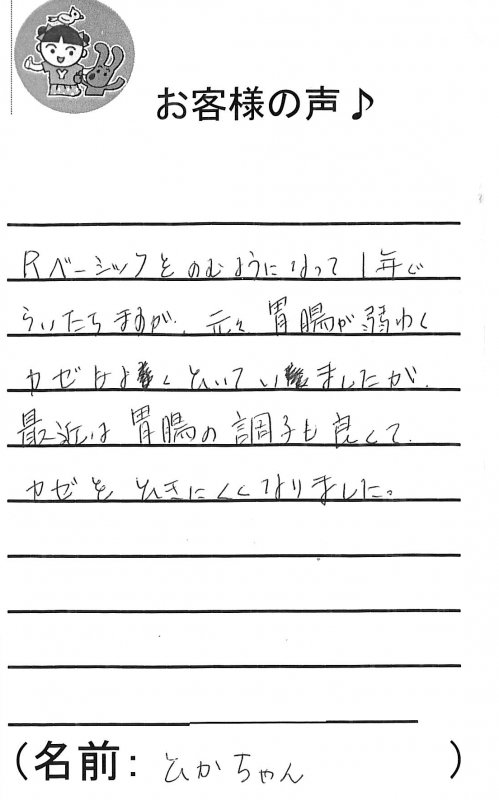 お客様の声♪
Rベーシックをのむようになって1年ぐ
らいたちますが、元々胃腸が弱わく
カゼはよくひいていましたが、
最近は胃腸の調子も良くて、
カゼをひきにくくなりました。
(名前: ひかちゃん )